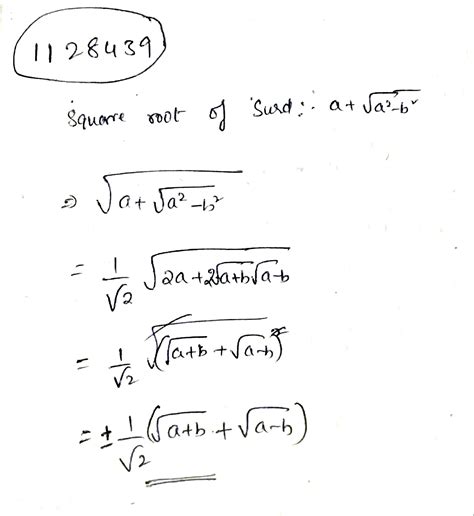 1128439
Square root of Surd:- a + √a²-b²
⇒ √a + √a² - b²
= 1/√2 √2a + 2√a+b √a-b
= 1/√2 √(√a+b + √a-b)²
= ± 1/√2 (√a+b + √a-b)